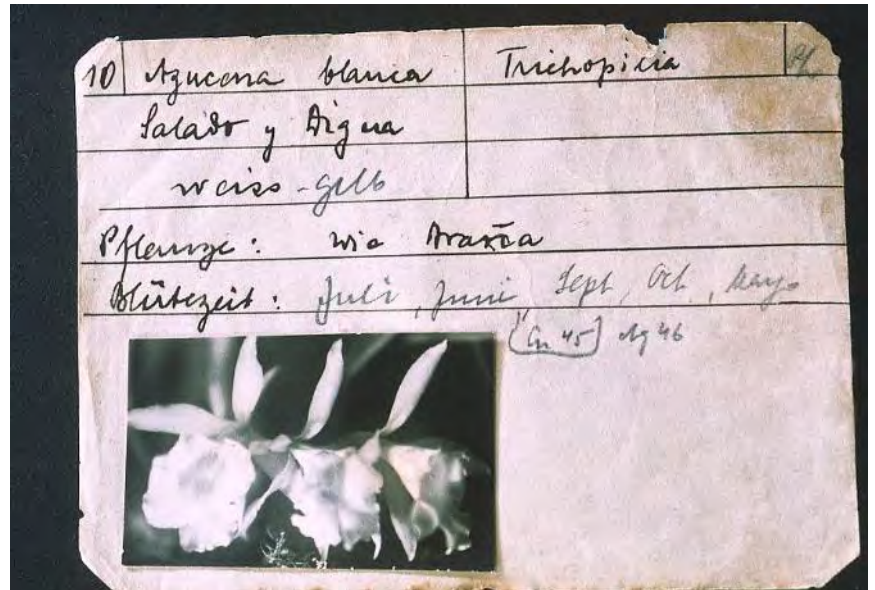 10 Azucena blanca Trichopilia
Salado y Aigua
weiss-gelb
Pflanze: wie
Blütezeit: Juli, Juni, Sept, Oct, Mayo
45 Ag 46